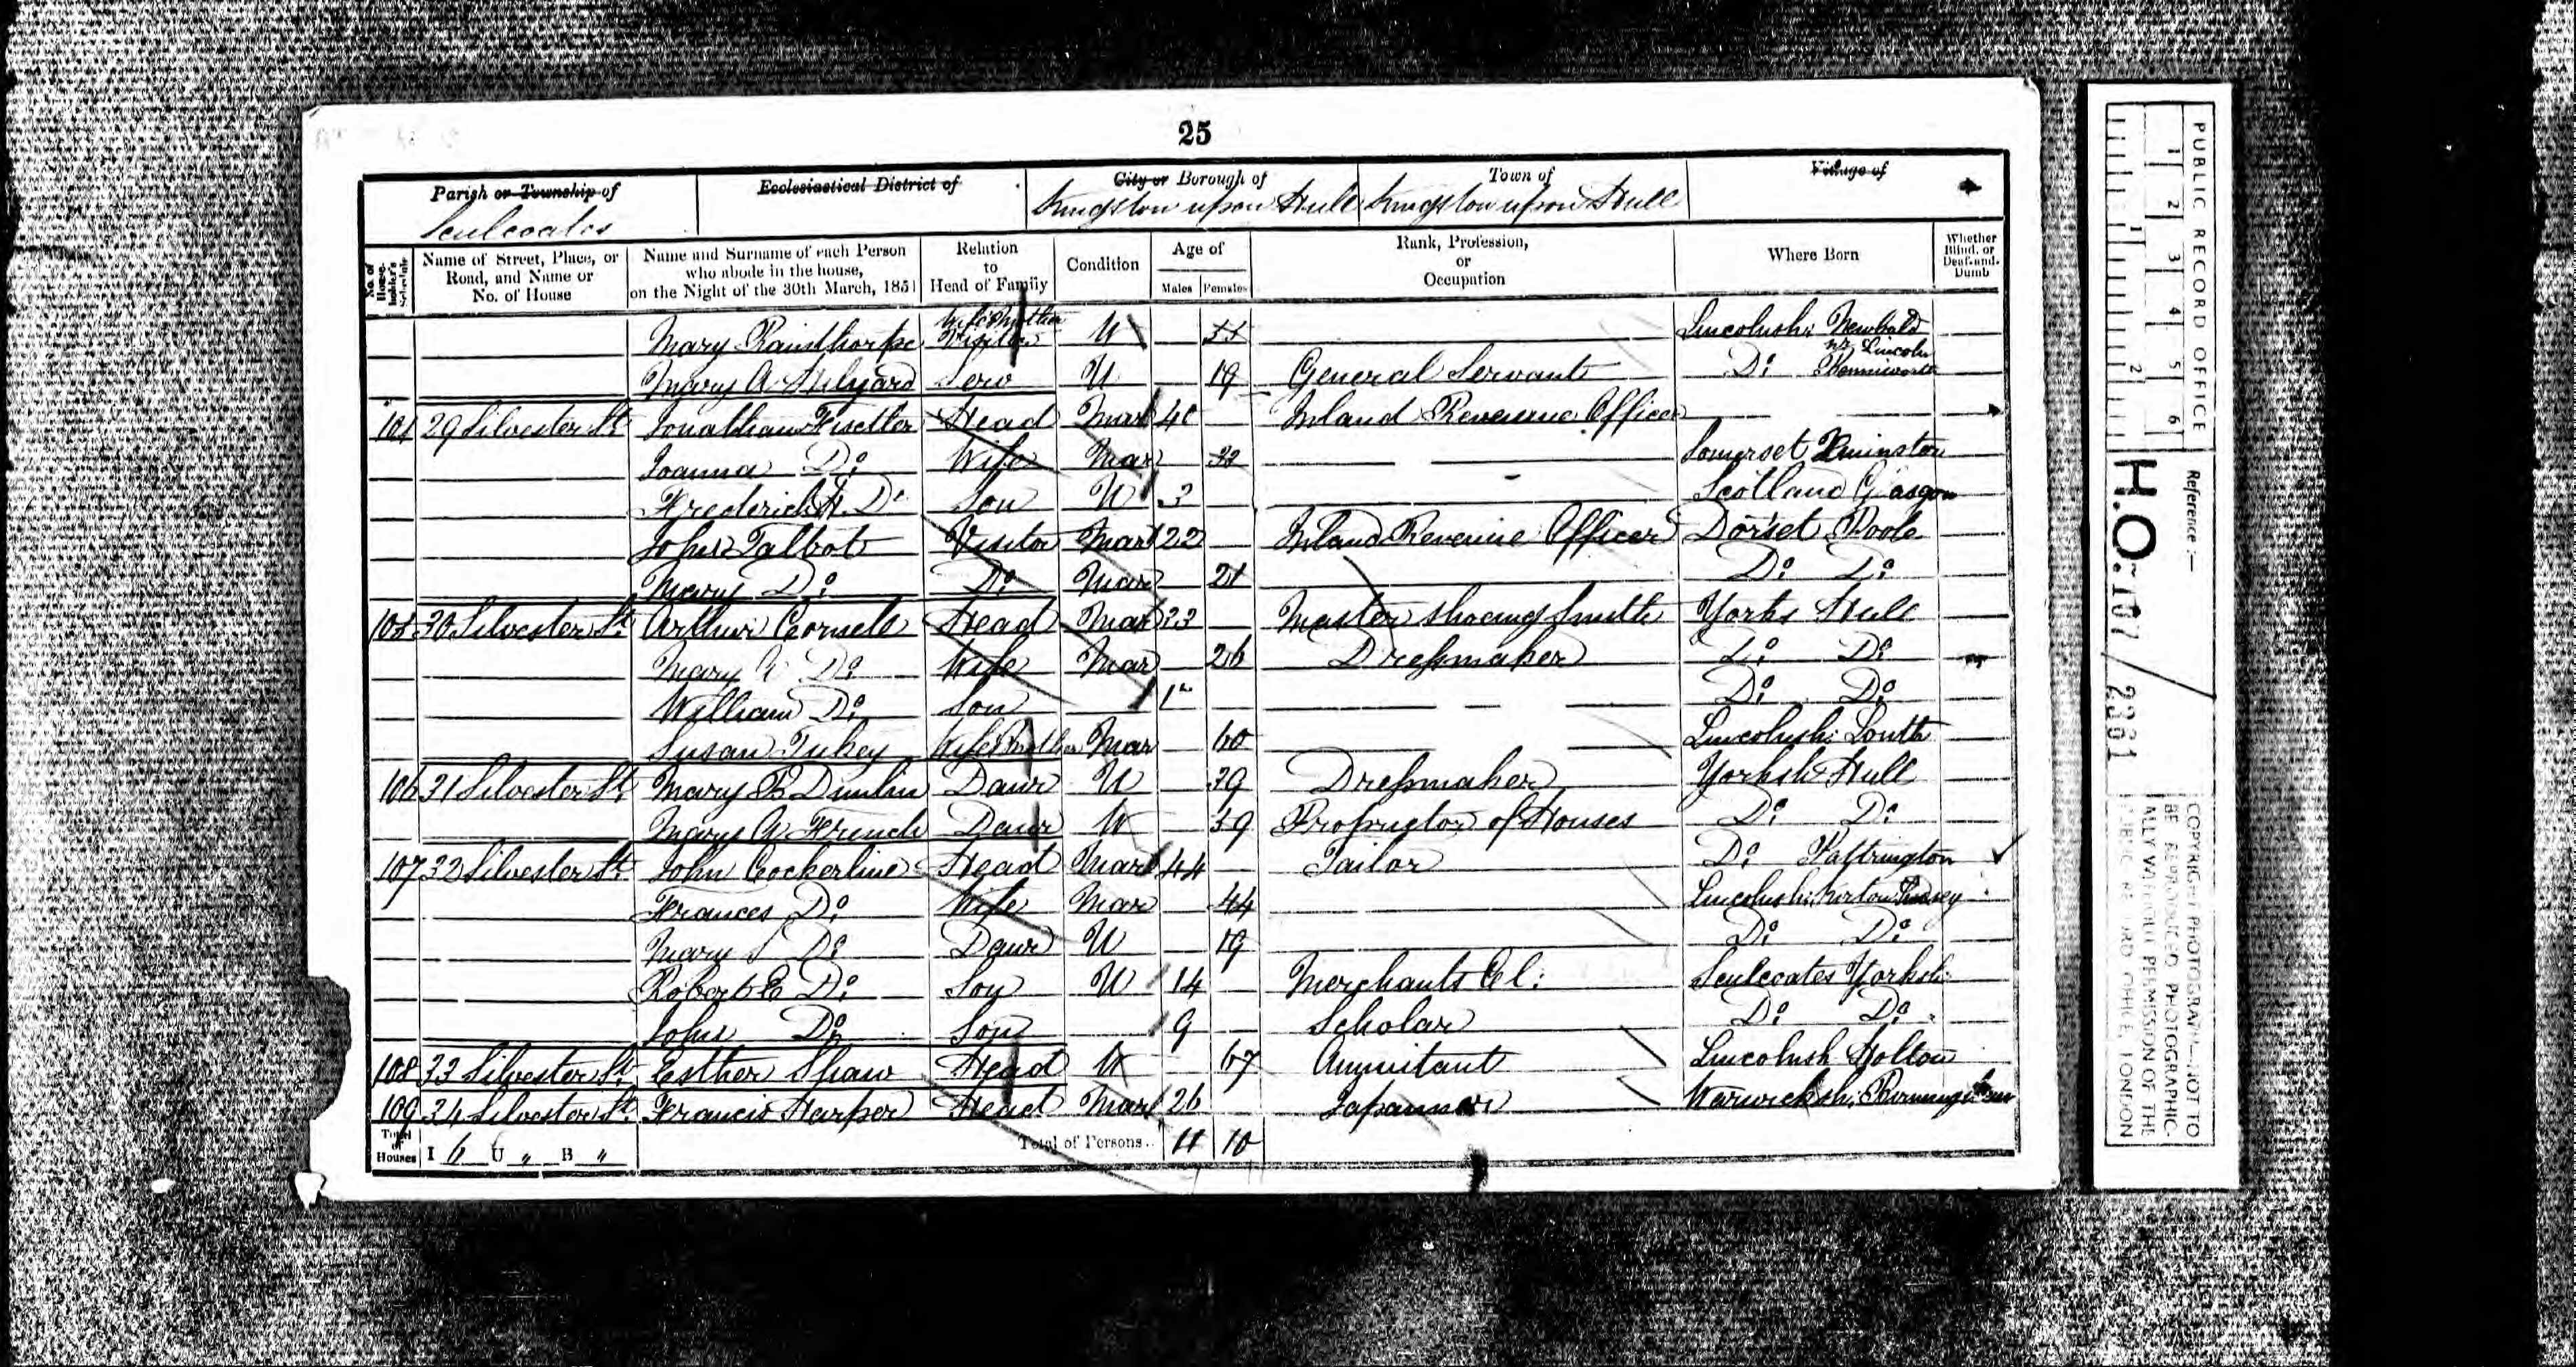 25
Parish or Township of
Sculcoates
Ecclesiastical District of
City or Borough of
Kingston upon Hull
Town of
Kingston upon Hull
Village of
No. of House-holder's Schedule
Name of Street, Place, or Road, and Name or No. of House
Name and Surname of each Person who abode in the house, on the Night of the 30th March, 1851
Relation to Head of Family
Condition
Age of
Males Females
Rank, Profession, or Occupation
Where Born
Whether Blind, or Deaf-and-Dumb
Mary Rainsthorpe Wife's Mother Visitor U Lincolnsh: Newbald
nr Lincoln
Mary A Serv U 19 General Servant Do
104 29 Silvester St. Jonathan Head Mar 40 Inland Revenue Officer
Joanna Do Wife Mar 33 Somerset
Frederick H. Do Son U 3 Scotland Glasgow
John Talbot Visitor Mar 22 Inland Revenue Officer Dorset Poole
Mary Do Do Mar 21 Do Do
105 30 Silvester St. Arthur Head Mar 23 Master Shoeing Smith Yorks Hull
Mary A Do Wife Mar 26 Dressmaker Do Do
William Do Son 1 Do Do
Susan Wife's Mother Mar 60 Lincolnsh: Louth
106 31 Silvester St. Mary B Daur U 39 Dressmaker Yorksh Hull
Mary A French Daur U 39 Proprietor of Houses Do Do
107 32 Silvester St. John Cockerline Head Mar 44 Tailor Do Pattrington
Frances Do Wife Mar 44 Lincolnsh: Kirton Lindsey
Mary S Do Daur U 19 Do Do
Robert E Do Son U 14 Merchants Cl: Sculcoates Yorksh:
John Do Son 9 Scholar Do Do
108 33 Silvester St. Esther Shaw Head U 67 Annuitant Lincolnsh Holton
109 34 Silvester St. Francis Harper Head Mar 26 Japanner Warwicksh: Birmingham
Total of Houses I 6 U " B "
Total of Persons.. 11 10
PUBLIC RECORD OFFICE
1 2 3 4 5 6
1 2
Reference :—
H.O. 107 / 2361
COPYRIGHT PHOTOGRAPH—NOT TO
BE REPRODUCED PHOTOGRAPHIC-
ALLY WITHOUT PERMISSION OF THE
PUBLIC RECORD OFFICE, LONDON